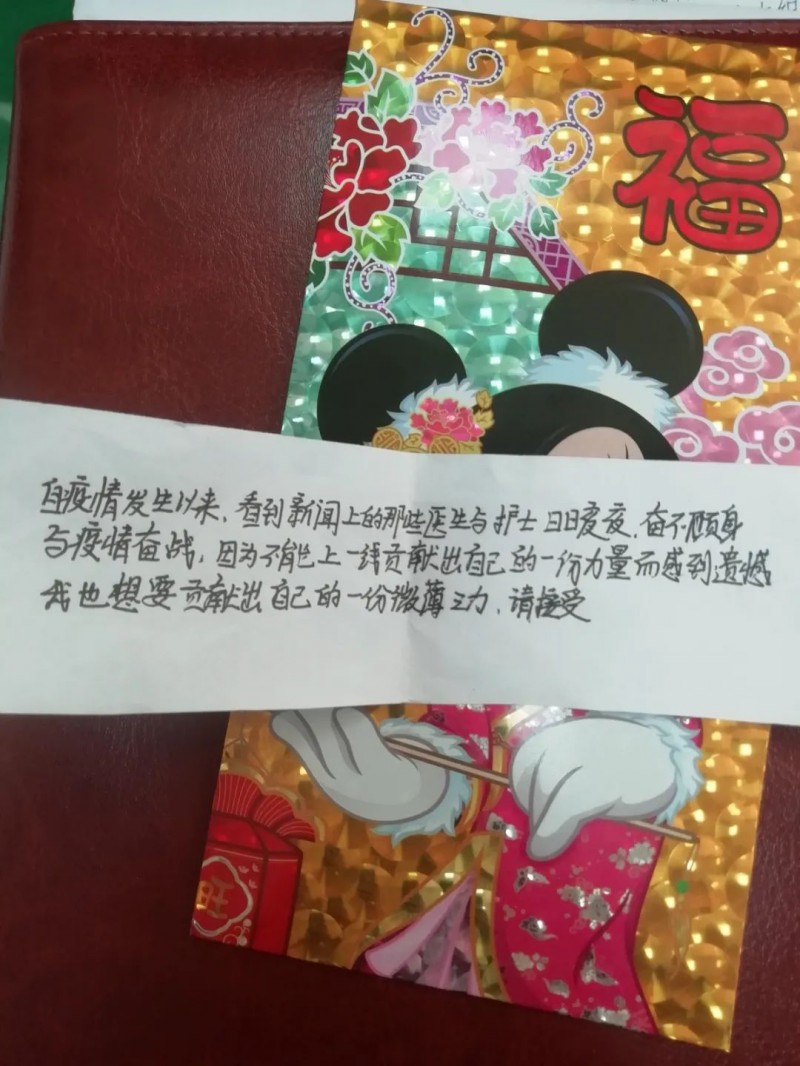 福
自疫情发生以来，看到新闻上的那些医生与护士日日夜夜，奋不顾身
与疫情奋战，因为不能上一线贡献出自己的一份力量而感到遗憾
我也想要贡献出自己的一份微薄之力，请接受